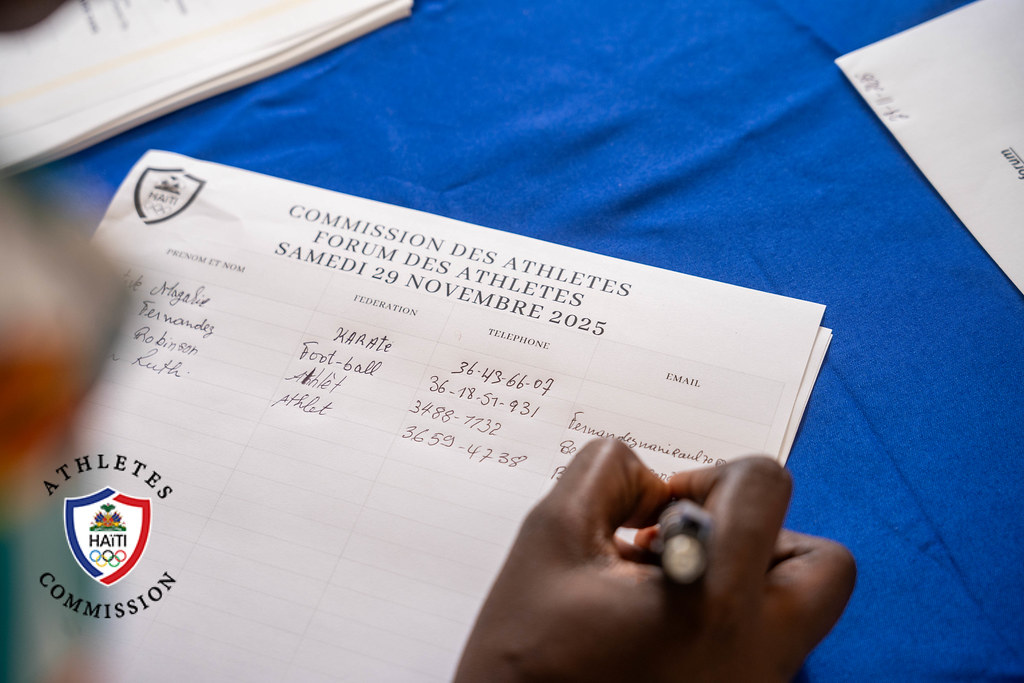 HAÏTI
COMMISSION DES ATHLETES
FORUM DES ATHLETES
SAMEDI 29 NOVEMBRE 2025
PRENOM ET NOM FEDERATION TELEPHONE EMAIL
Magalie KARATE 36-43-66-07
Fernandez Foot-ball 36-18-51-931
Robinson Athlèt 3488-1732
Ruth. Athlet 3659-4738
ATHLETES
HAÏTI
COMMISSION